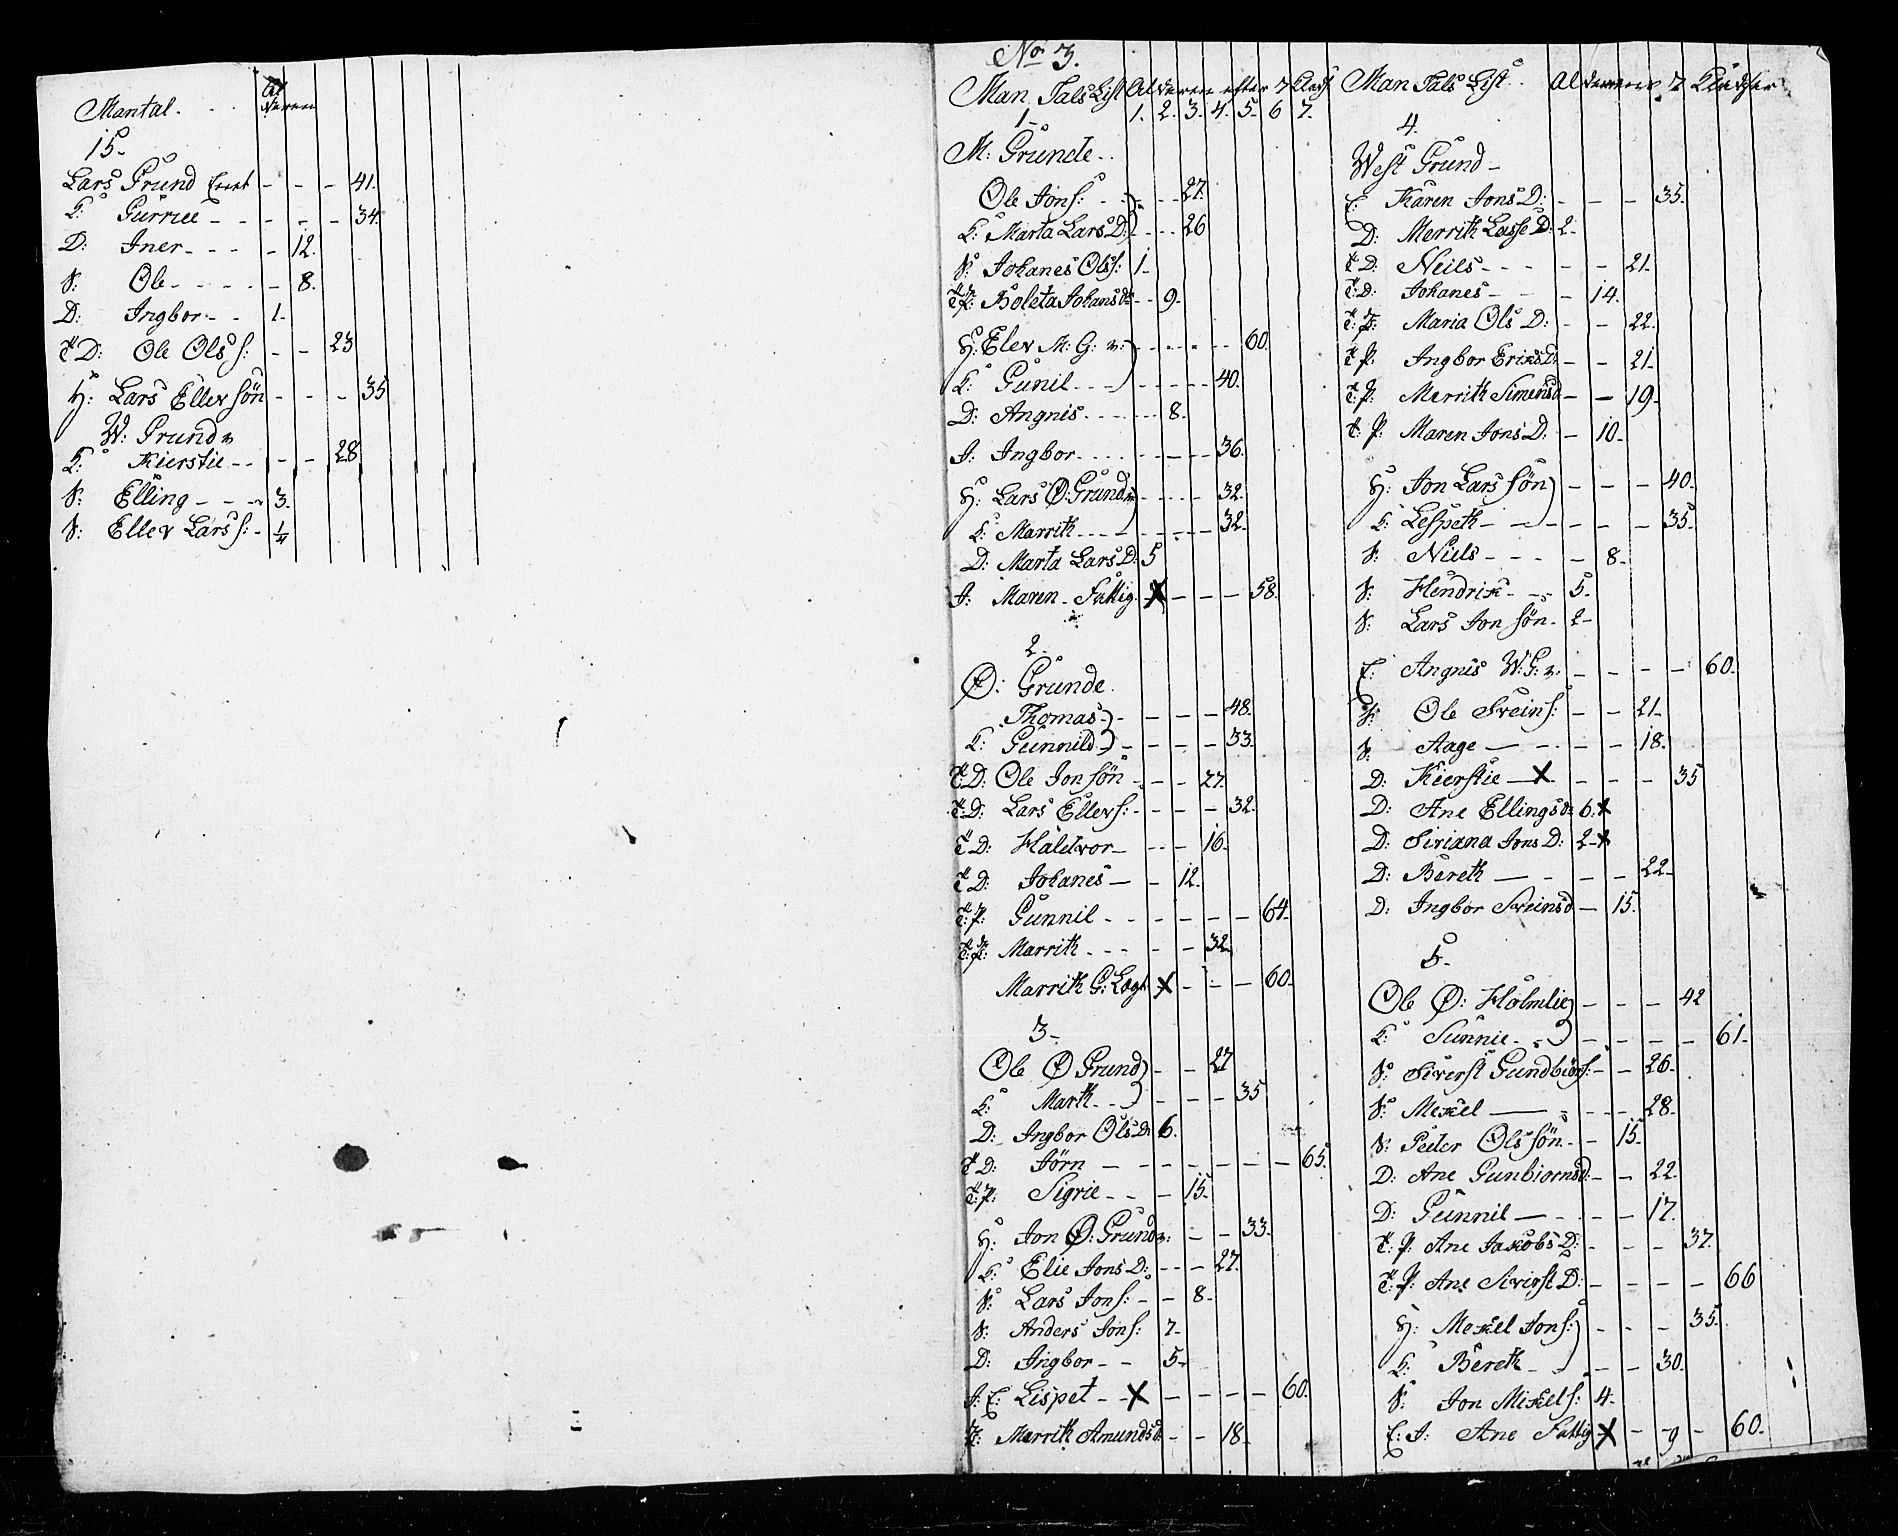 Mantal. Al deren
15.
Lars Grund - - - 41.
K: Gurrie - - - - - 34
D: Iner - - - - 12.
S: Ole - - - - - 8.
D: Ingbor - - 1-
T D: Ole Ols S: - - 23
H: Lars Eller Søn - - - 35
W: Grund
K: Kierstie - - - - 28
S: Elling - - - 3.
S: Eller Lars S: - 1/4
No 3.
Man Tals List Al deren efter 7 Clas
1. 2. 3. 4. 5. 6 7.
1-
M: Grunde.
Ole Jons: - - - 27.
K: Marta Lars D: - - - 26
S: Johanes Ols S: 1-
T: P: Boleta Johans D - - 9-
H: Elev M: G: - - - - - 60.
K: Gunil - - - - - - 40.
D: Angnis - - - - - 8.
I: Ingbor - - - - - - 36.
H: Lars Ø: Grund - - - - 32.
K: Marrith - - - - - - 32.
D: Marta Lars D: 5
I: Maren - Fattig X - - - 58.
2-
Ø: Grunde.
Thomas - - - - 48.
K: Gunnild - - - - - 33.
T: D: Ole Jon Søn - - - 27.
T: D: Lars Ellers: - - - - 32.
T D: Haldvor - - - - 16.
T D: Johanes - - 12.
T: P: Gunnil - - - - - - 64.
T: P: Marrith - - - - - 32.
Marrith G: Lægt X - - - 60.
3-
Ole Ø Grund - - 27
K: Marth - - - - - 35
D: Ingbor Ols D: 6.
T D: Jørn - - - - - - - 65.
T: P: Sigrie - - - 15.
H: Jon Ø: Grund - - 33.
K: Elie Jons D: - - - 27.
S: Lars Jons: - - 8-
S: Anders Jons: 7-
D: Ingbor - - 5-
I: E: Lispet - - X - - - - 60.
T: Marrith Amunds D: - - 18-
Man Tals List. Al derens 7 Classer
4.
West Grund -
E: Karen Jons D: - - - 35.
D: Merrith Lasse D: 2-
T D: Neils - - - - - 21.
T: D: Johanes - - - 14.
T: P: Maria Ols D: - - 22.
T: P: Ingbor Eriks D: - - 21.
T: P: Merrith Simens D - - 19-
T: P: Maren Jons D: - 10-
H: Jon Lars Søn - - - 40.
K: Lespeth - - - - - - 35.
S: Niels - - - - 8-
S: Hendrik - - - 5-
S: Lars Jon Søn - 2-
E: Angnis W: G: - - - - 60.
S: Ole Sveins: - - 21-
S: Aage - - - - - 18.
D: Kierstie - X - - - 35
D: Ane Ellings D: 6. X
D: Siriana Jons D: 2- X
D: Bereth - - - - - 22-
D: Ingbor Sveins D - 15.
5-
Ole Ø: Holmlie - - - 42
K: Sunnie - - - - - - 61.
S: Siverst Gundbiørs: - - 26-
S: Mekel - - - - - 28-
S: Peiter Ols Søn - - 15-
D: Ane Gunbiorns D: - - 22.
D: Gunnil - - - - - 17.
T: P: Ane Jakobs D: - - - 37.
T: P: Ane Siverst D: - - - - 66
H: Mekel Jons: - - - 35.
K: Bereth - - - - 30.
S: Jon Mikels: 4-
E: I: Ane Fattig X - - 9 - 60-